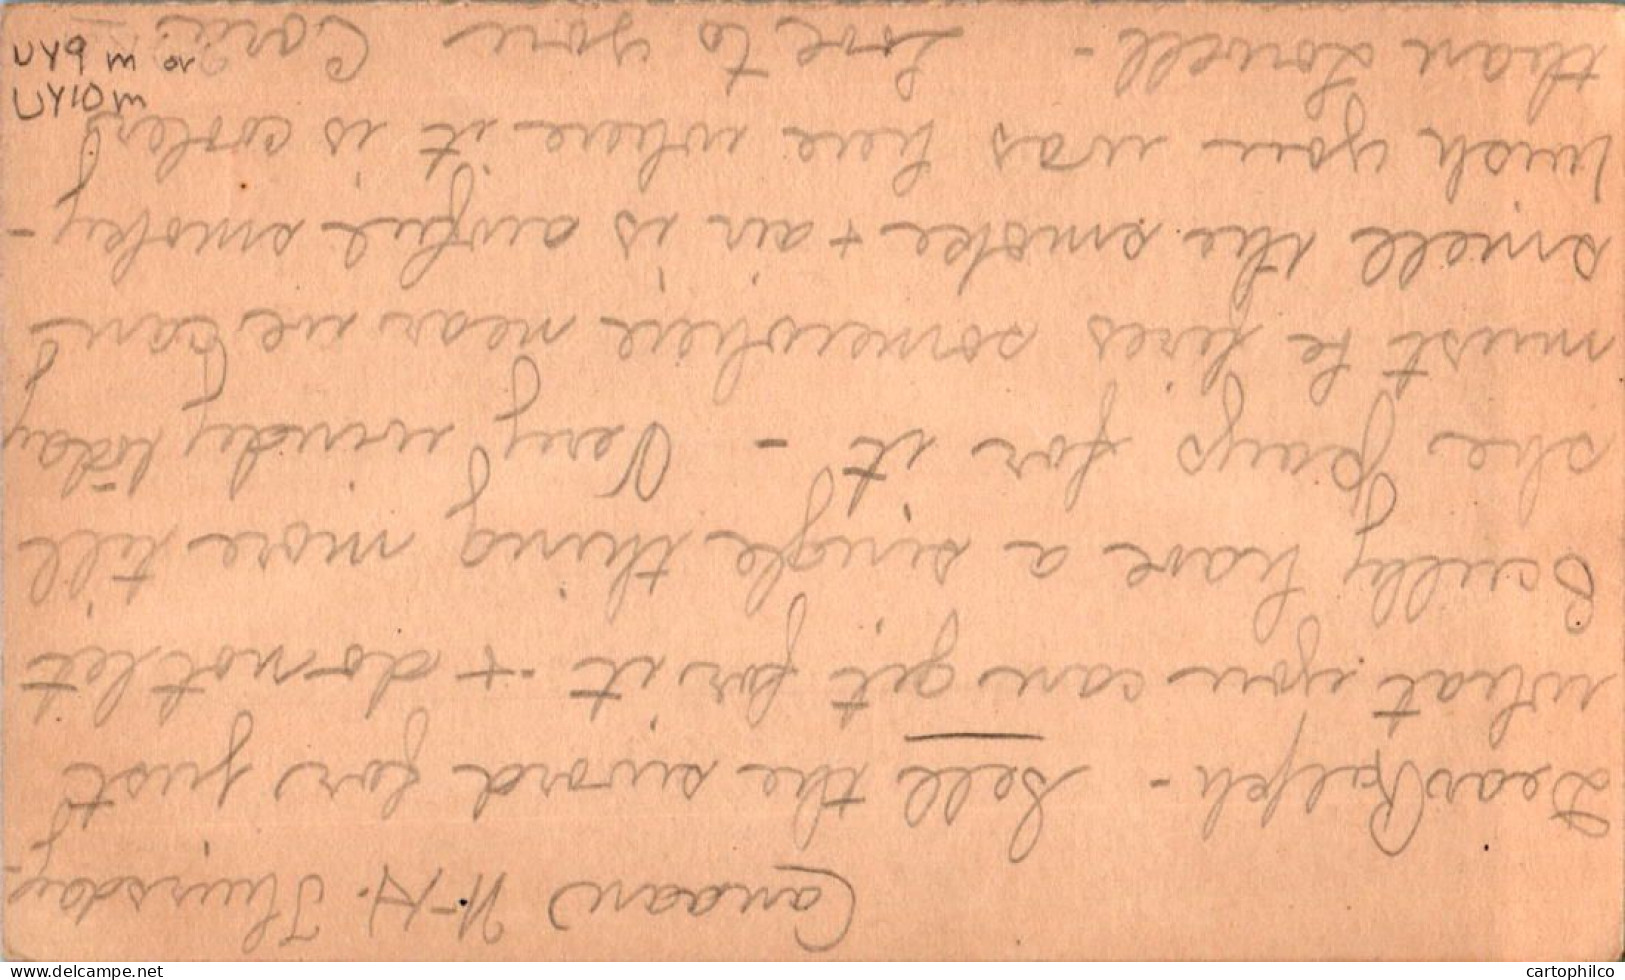 Canaan N-H. Thursday.
Dear Ralph - Sell the sword for just
what you can get for it - + do not let
Scully have a single thing more till
she pays for it - Very windy today
must be fires somewhere near we can
smell the smoke + air is awful smoky -
wish you was here where it is cooler
than Lowell - Love to you Cora.
UY9 m or
UY10m
www.delcampe.net
cartophilco